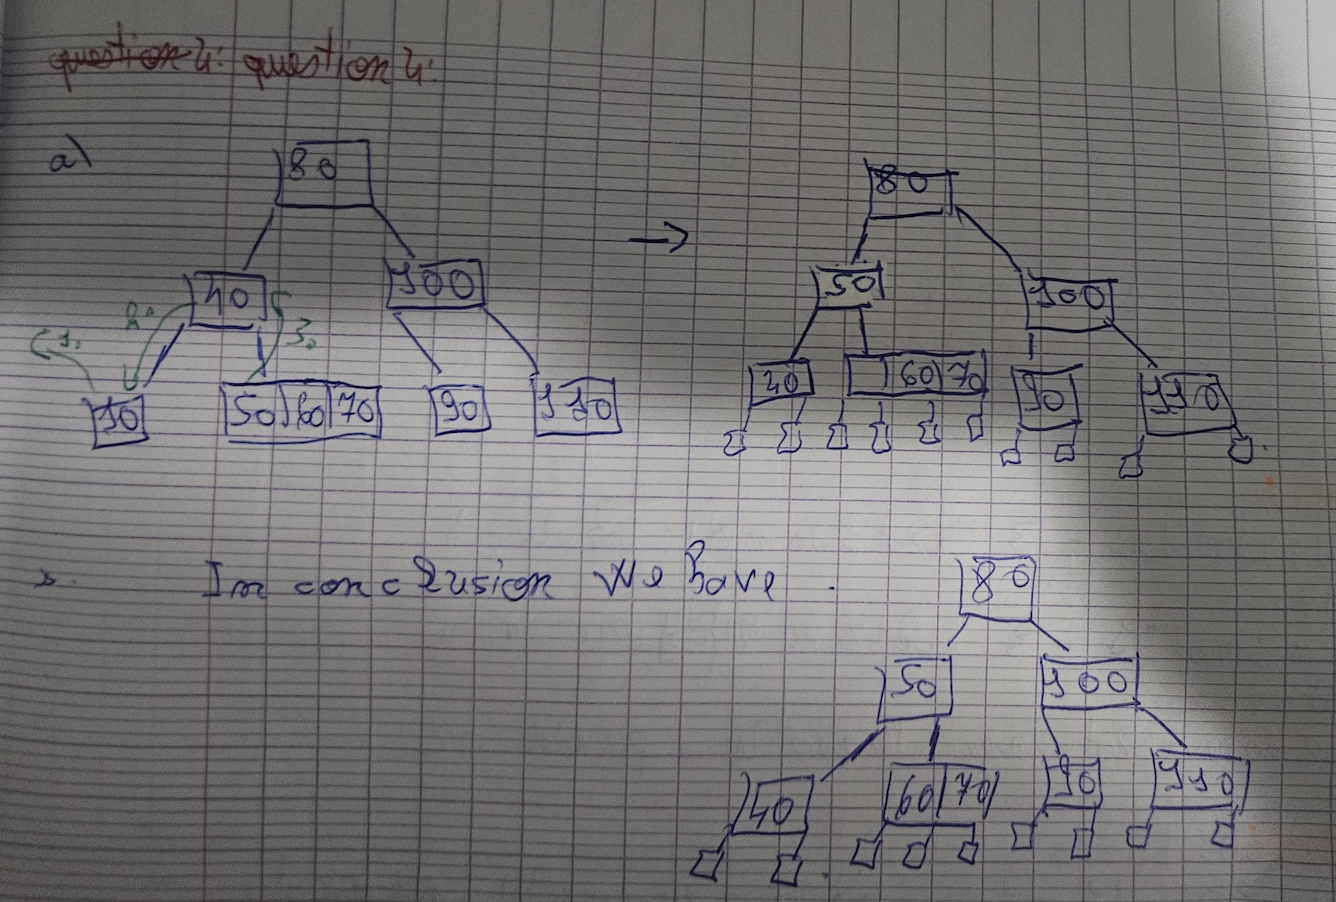 question 4: question 4:
a)
80
80
40
100
50
100
2.
1.
3.
10
50 60 70
90
110
40
60 70
90
110
In conclusion we have .
80
50
100
40
60 70
90
110